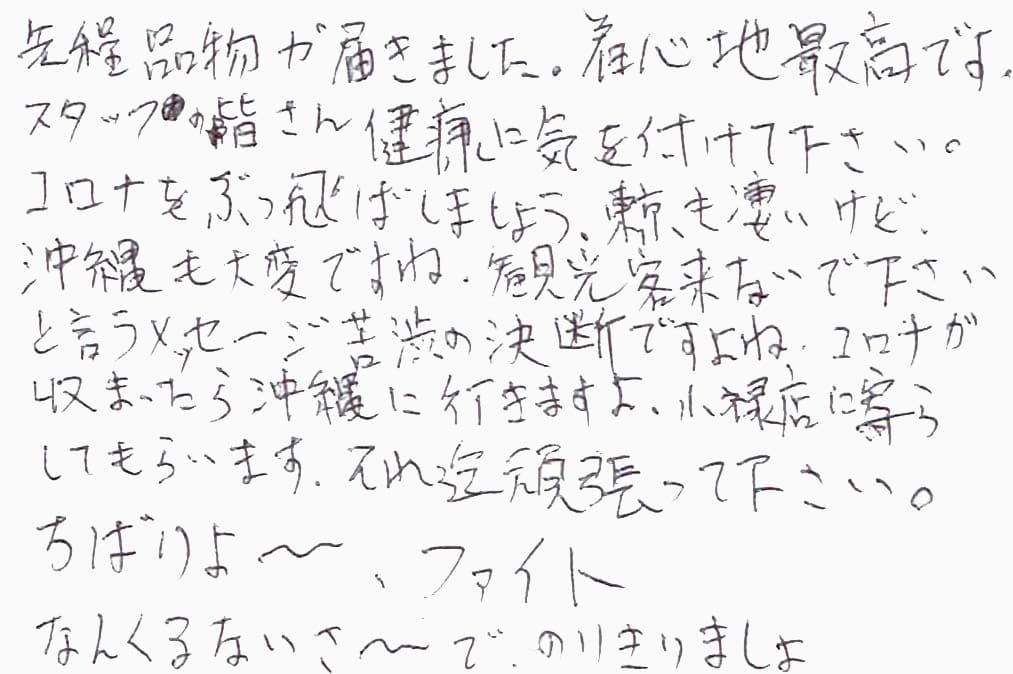 先程品物が届きました。着心地最高です.
スタッフの皆さん健康に気を付けて下さい。
コロナをぶっ飛ばしましょう、東京も凄いけど、
沖縄も大変ですね.観光客来ないで下さい
と言うメッセージ苦渋の決断ですよね.コロナが
収まったら沖縄に行きますよ、小禄店に寄ら
してもらいます.それ迄頑張って下さい。
ちばりよ〜、ファイト
なんくるないさ〜で.のりきりましょ